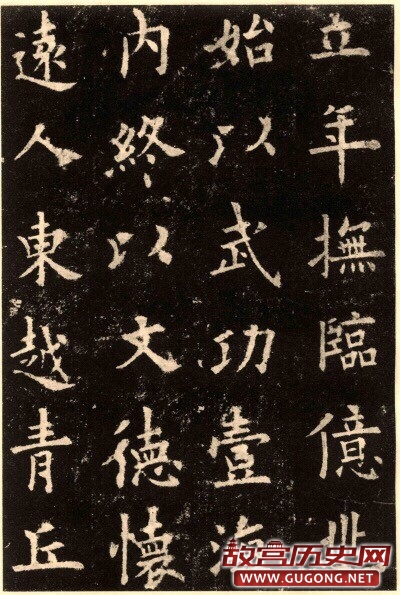 立年撫臨億兆
始以武功壹海
內終以文德懷
遠人東越青丘
故宫历史网
WWW.GUGONG.NET